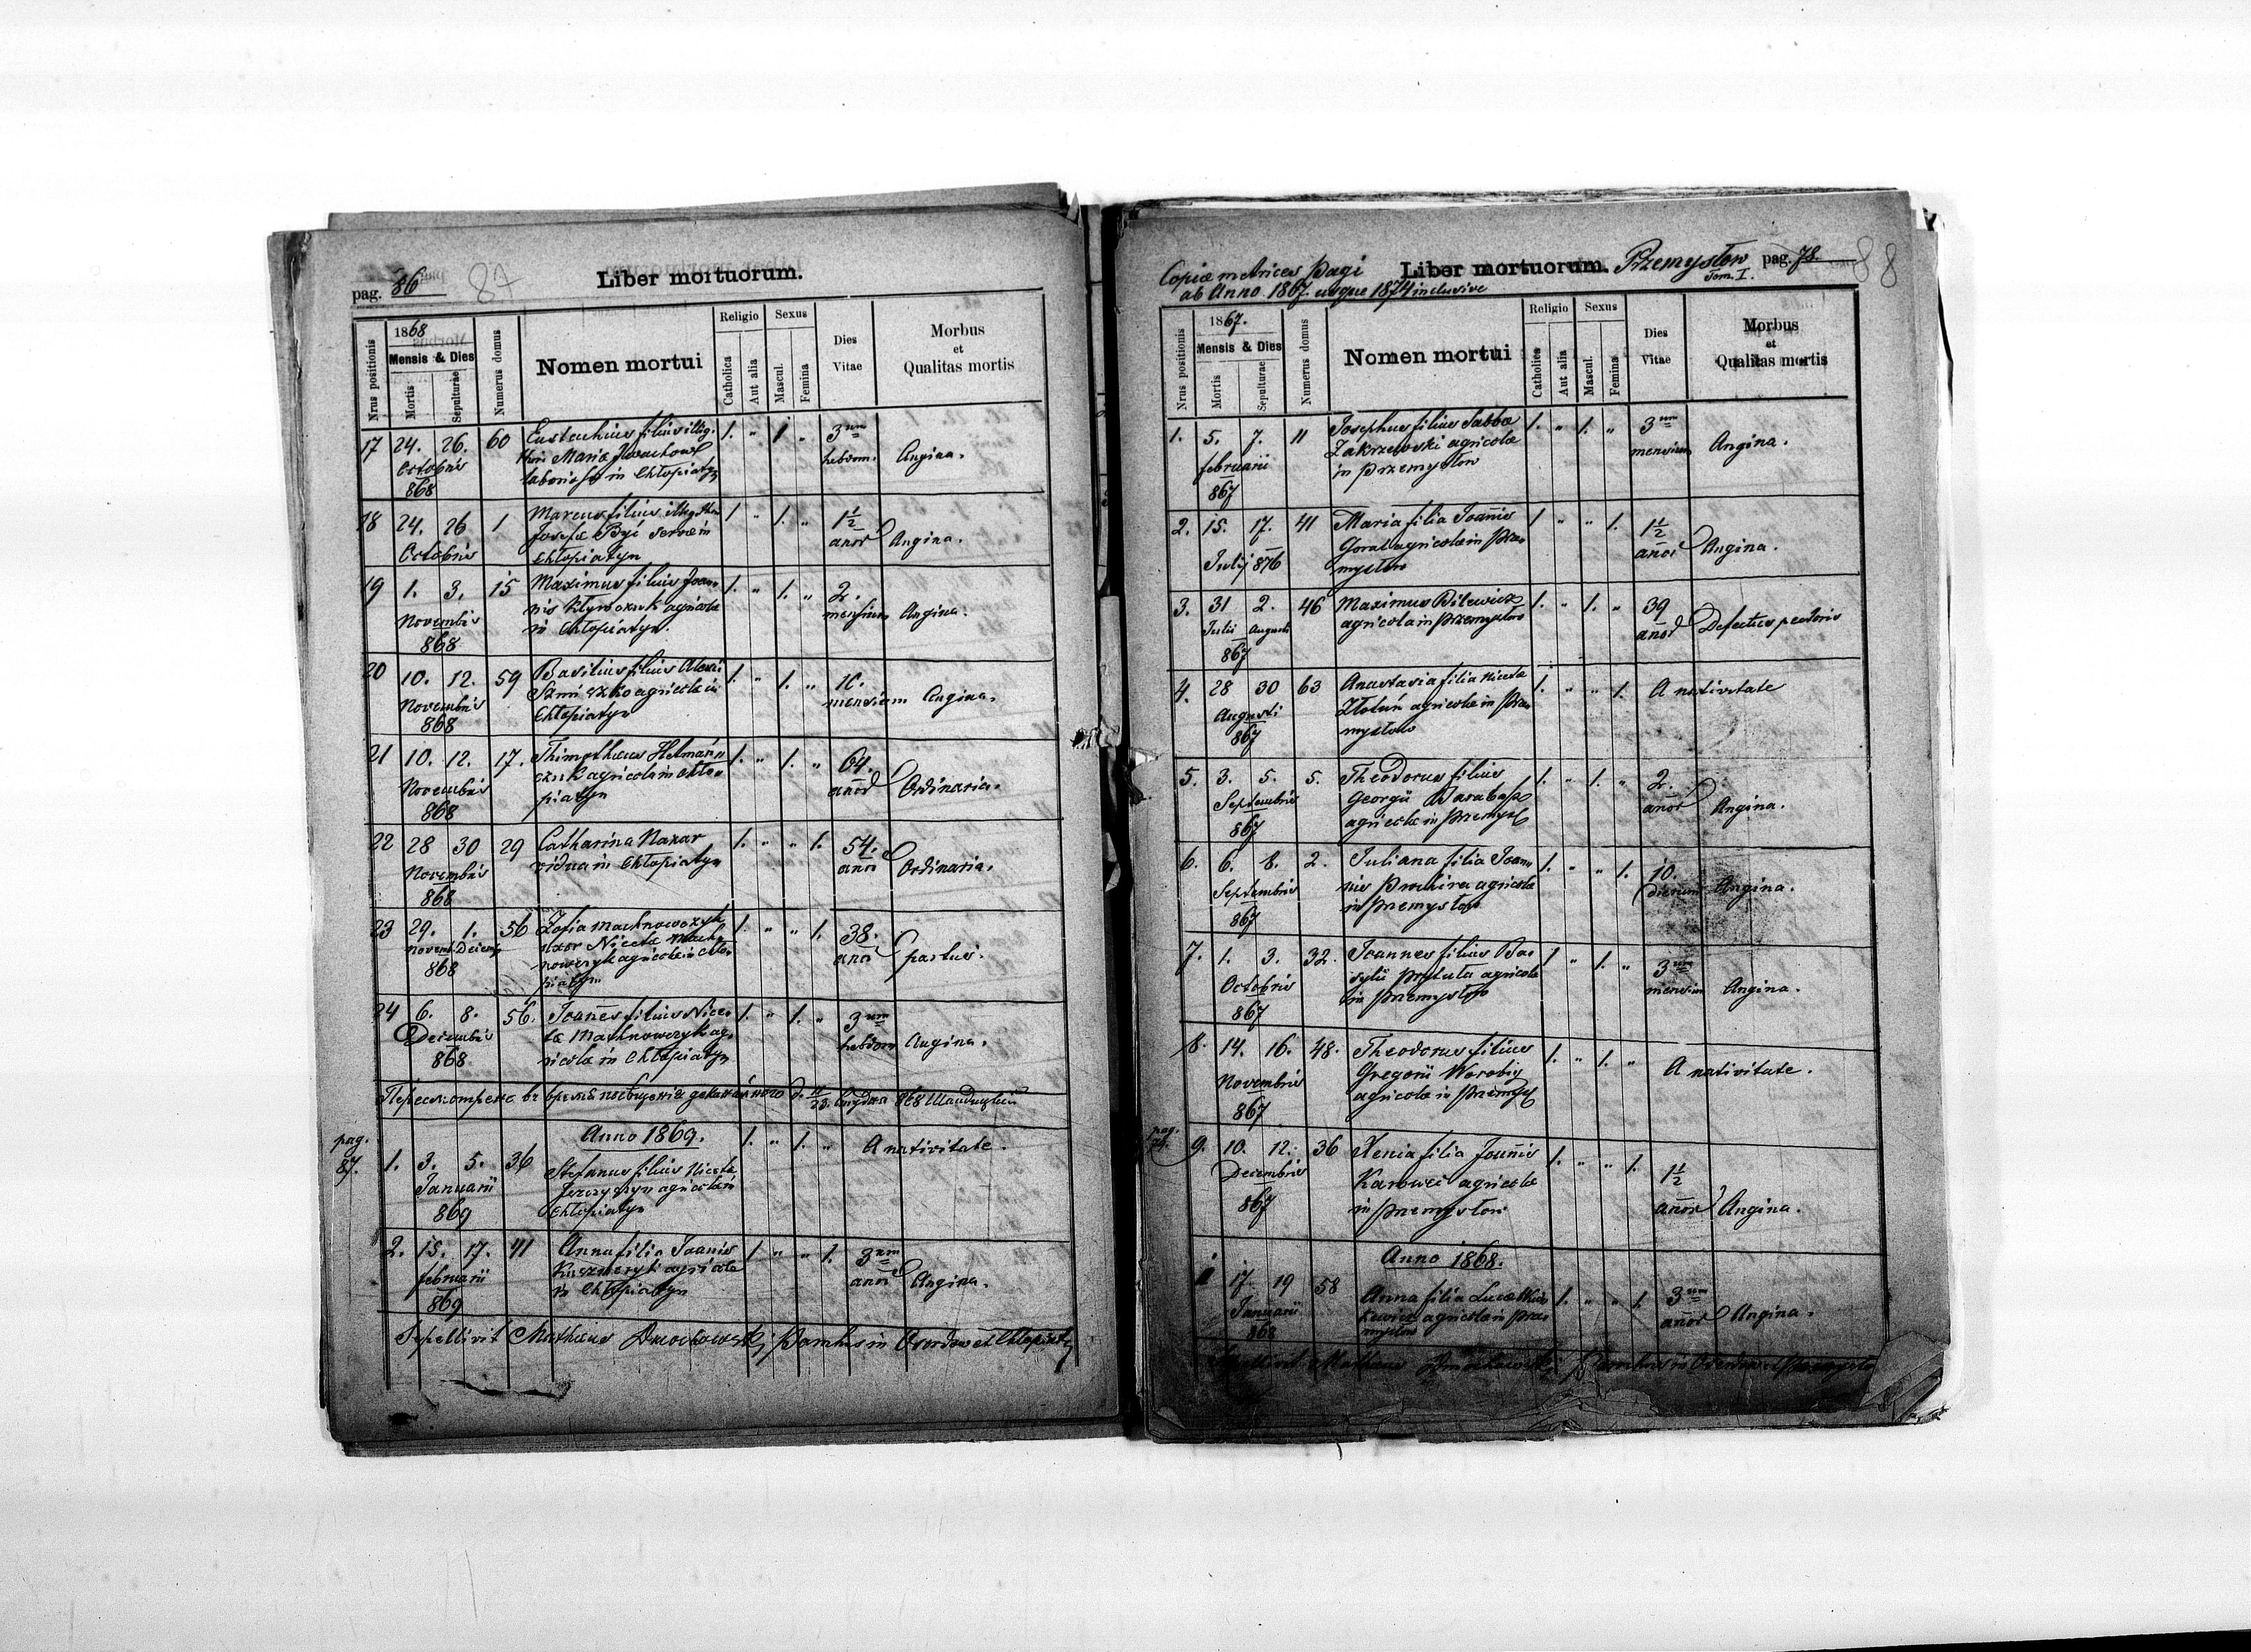 pag. 86 87 Liber mortuorum.
Nrus positionis
1868
Mensis & Dies
Mortis
Sepulturae
Numerus domus
Nomen mortui
Religio
Catholica
Aut alia
Sexus
Mascul.
Femina
Dies
Vitae
Morbus
et
Qualitas mortis
17 24. 26. 60 Eustachius filius illeg. 1. " 1 " 3um
Octobris thori Maria hebdom. Angina.
868 in Chłopiatyn
18 24. 26 1 Marcus filius illeg. 1 " 1. " 1½
Octobris Josefa servae in anor Angina.
Chłopiatyn
19 1. 3. 15 Maximus filius Joan 1. " 1. " 2.
Novembris nis agricolae mensium Angina.
868 in Chłopiatyn.
20 10. 12. 59 Basilius filius Alexii 1. " 1. "
Novembris agricolae in mensium Angina.
868 Chłopiatyn
21 10. 12. 17. Thimotheus Hetmań 1. " 1. " 64.
Novembris czuk agricola in Chło anor Ordinaria.
868 piatyn
22 28 30 29 Catharina Nazar 1. " " 1. 54.
Novembris vidua in Chłopiatyn anor Ordinaria.
868
23 29. 1. 56 Zofia Machnowczyk 1. " " 1. 38.
Novemb. Decemb. uxor Nicetae Mach anor partus.
868 nowczyk agricolae in Chło
piatyn
24 6. 8. 56. Joannes filius Nice 1. " 1. " 3um
Decembris tae Machnowczyk ag hebdom Angina.
868 ricolae in Chłopiatyn
868
Anno 1869.
pag.
87.
1. 3. 5. 36 Stefanus filius Nicetae 1. " 1. " A nativitate.
Januarii agricolae in
869 Chłopiatyn
2. 15. 17. 41 Anna filia Joannis 1. " " 1. 3um
februarii agricolae anor Angina.
869 in Chłopiatyn
Sepellivit Mathaeus in et Chłopiatyn
Copiae metrices pagi Liber mortuorum. Przemysłow pag. 78. 88
ab Anno 1867. usque 1874 inclusive Tom. I.
Nrus positionis
1867.
Mensis & Dies
Mortis
Sepulturae
Numerus domus
Nomen mortui
Religio
Catholica
Aut alia
Sexus
Mascul.
Femina
Dies
Vitae
Morbus
et
Qualitas mortis
1. 5. 7. 11 Josephus filius Sabbae 1. " 1. " 3um
februarii Zakrzewski agricolae mensium Angina.
867 in Przemysłow
2. 15. 17. 41 Maria filia Joannis 1 " " 1. 1½
Julij 876 Goral agricolae in Prze anor Angina.
mysłow
3. 31 2. 46 Maximus Bilewicz 1. " 1. " 39
Julii Augusti agricola in Przemysłow anor Defectus pectoris
867
4. 28 30 63 Anastasia filia Nicetae 1. " " 1. A nativitate
Augusti agricolae in Prze
867 mysłow
5. 3. 5. 5. Theodorus filius 1. " 1. " 2.
Septembris Georgii Barabasz anor Angina.
867 agricolae in Przemysł
6. 6. 8. 2. Juliana filia Joan 1. " " 1. 10.
Septembris nis Prochira agricolae dierum Angina.
867 in Przemysłow
7. 1. 3. 32. Joannes filius Ba 1 " 1. " 3um
Octobris sylii Prytuła agricolae mensium Angina.
867 in Przemysłow
8. 14. 16. 48. Theodorus filius 1. " 1. " A nativitate.
Novembris Gregorii Worobij
867 agricolae in Przemysł
pag.
9. 10. 12. 36 Xenia filia Joannis 1. " " 1. 1½
Decembris agricolae
867 in Przemysłow anor Angina.
Anno 1868.
1 17. 19 58 Anna filia Lucae 1. " " 1. 3um
Januarii agricolae in Prze anor Angina.
868 mysłow
Sepellivit Mathaeus in et Przemysłow